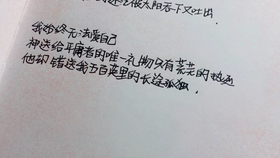 被太阳吞下又吐出
我始终无法爱自己
神送给平庸者的唯一礼物只有荒芜的
他却错送我五百英里的长途孤独